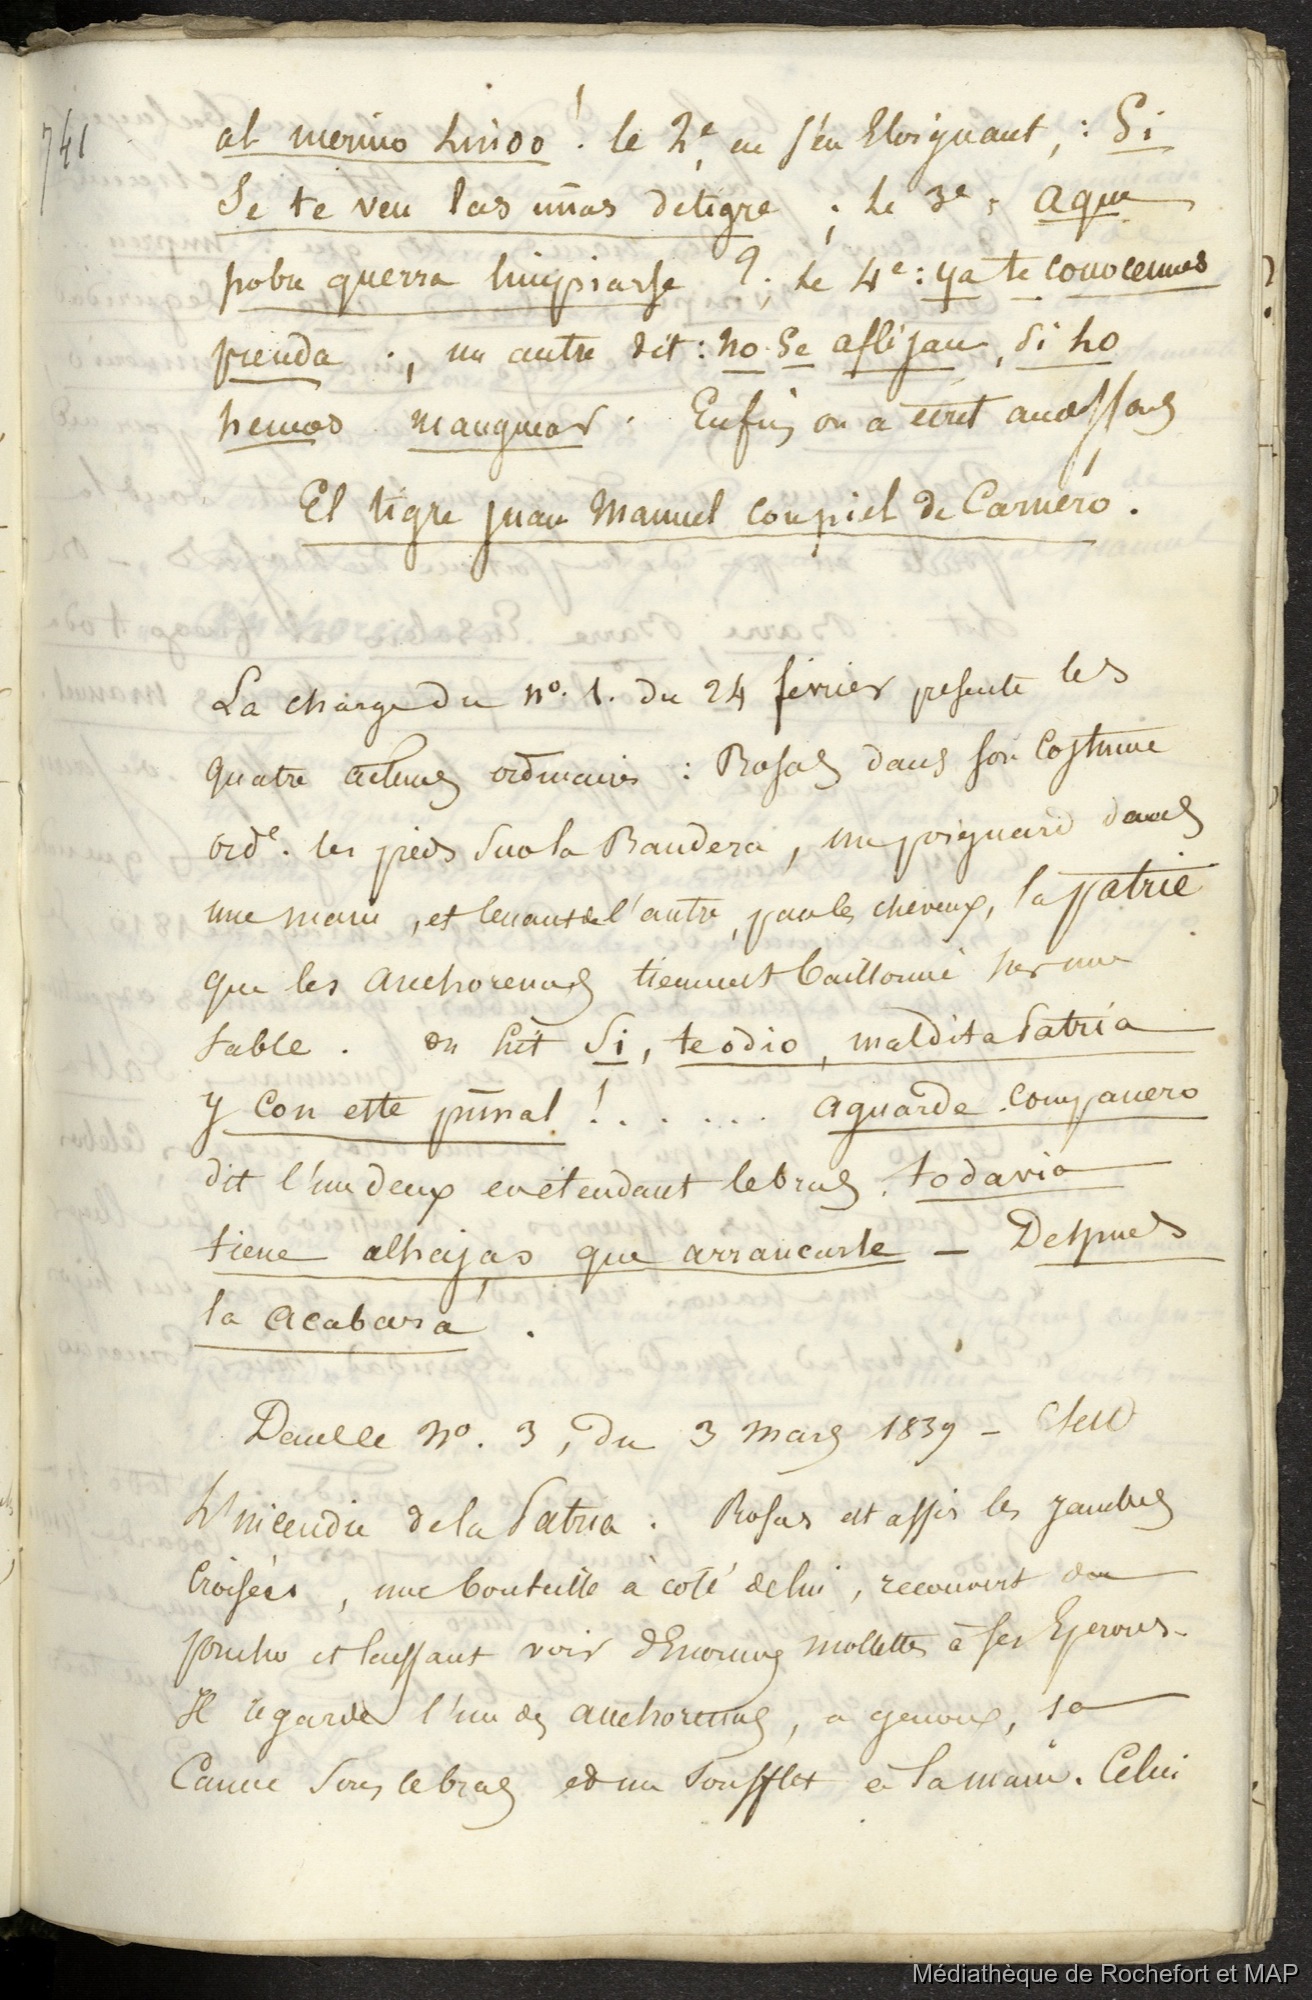 741
al merino Lindo ! le 2e, en s'en Eloignant, : Si
Se te ven las uñas de tigre ; le 3e : aque
pobre querra limpiarse ? ; le 4e : ya te conocemos
prenda ; , un autre dit : no Se aflijan, Si lo
hemos manquear . Enfin on a écrit audessous
El tigre Juan Manuel con piel de Carnero .
La charge du no. 1. du 24 février présente les
quatre acteurs ordinaires : Rosas dans son Costume
orde. les pieds Sur la Bandera, un poignard dans
une main, et tenant de l'autre, par les cheveux, la patrie
que les anchorenas tiennent baillonné sur une
table . on lit Si, te odio, maldita Patria
y con este puñal ! . . . . . . aguarde companero
dit l'un deux en étendant le bras . todavia
tiene alhajas que arrancarle — Despues
la acabará .
Dans le No. 3, du 3 mars 1839 - C'est
L'incendie de la Patria . Rosas est assis les jambes
Croisées, une bouteille à coté de lui, recouvert du
poncho et laissant voir d'Enormes mollettes à ses Eperons -
Il regarde l'un des anchorenas, a genoux, sa
Canne Sous le bras et un Soufflet à la main . Celui
Médiathèque de Rochefort et MAP